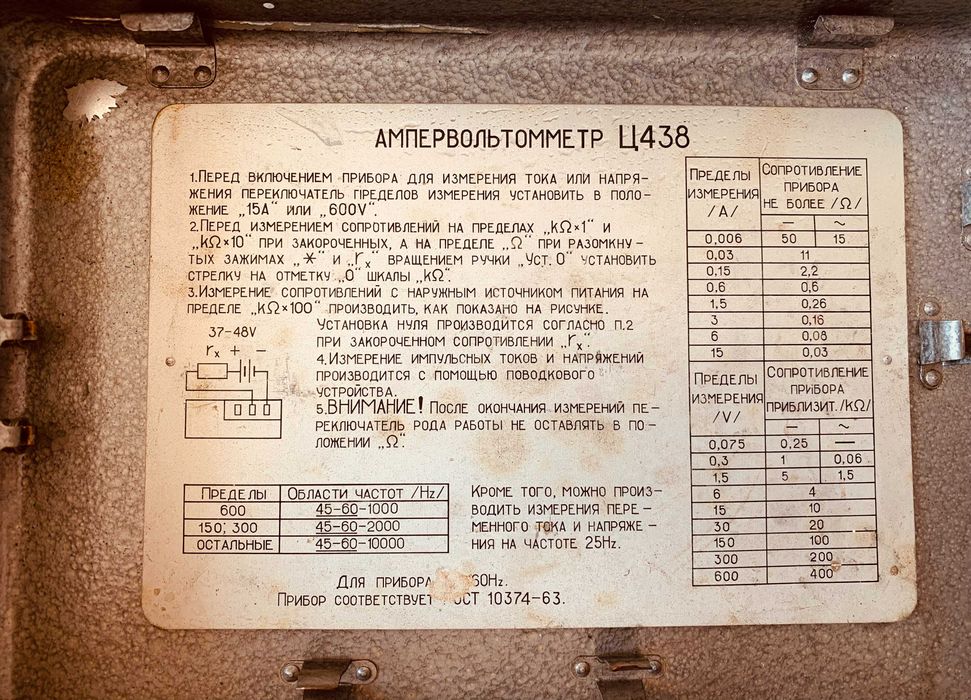 АМПЕРВОЛЬТОММЕТР Ц438
1.ПЕРЕД ВКЛЮЧЕНИЕМ ПРИБОРА ДЛЯ ИЗМЕРЕНИЯ ТОКА ИЛИ НАПРЯ-
ЖЕНИЯ ПЕРЕКЛЮЧАТЕЛЬ ПРЕДЕЛОВ ИЗМЕРЕНИЯ УСТАНОВИТЬ В ПОЛО-
ЖЕНИЕ „15А" ИЛИ „600V".
2.ПЕРЕД ИЗМЕРЕНИЕМ СОПРОТИВЛЕНИЙ НА ПРЕДЕЛАХ „kΩ×1" И
„kΩ×10" ПРИ ЗАКОРОЧЕННЫХ, А НА ПРЕДЕЛЕ „Ω" ПРИ РАЗОМКНУ-
ТЫХ ЗАЖИМАХ „*" И „rx" ВРАЩЕНИЕМ РУЧКИ „УСТ. 0" УСТАНОВИТЬ
СТРЕЛКУ НА ОТМЕТКУ „0" ШКАЛЫ „kΩ".
3.ИЗМЕРЕНИЕ СОПРОТИВЛЕНИЙ С НАРУЖНЫМ ИСТОЧНИКОМ ПИТАНИЯ НА
ПРЕДЕЛЕ „kΩ×100" ПРОИЗВОДИТЬ, КАК ПОКАЗАНО НА РИСУНКЕ.
37-48V
rx + −
УСТАНОВКА НУЛЯ ПРОИЗВОДИТСЯ СОГЛАСНО П.2
ПРИ ЗАКОРОЧЕННОМ СОПРОТИВЛЕНИИ „rx".
4.ИЗМЕРЕНИЕ ИМПУЛЬСНЫХ ТОКОВ И НАПРЯЖЕНИЙ
ПРОИЗВОДИТСЯ С ПОМОЩЬЮ ПОВОДКОВОГО
УСТРОЙСТВА.
5.ВНИМАНИЕ! ПОСЛЕ ОКОНЧАНИЯ ИЗМЕРЕНИЙ ПЕ-
РЕКЛЮЧАТЕЛЬ РОДА РАБОТЫ НЕ ОСТАВЛЯТЬ В ПО-
ЛОЖЕНИИ „Ω".
ПРЕДЕЛЫ ОБЛАСТИ ЧАСТОТ /Hz/
600 45-60-1000
150; 300 45-60-2000
ОСТАЛЬНЫЕ 45-60-10000
КРОМЕ ТОГО, МОЖНО ПРОИЗ-
ВОДИТЬ ИЗМЕРЕНИЯ ПЕРЕ-
МЕННОГО ТОКА И НАПРЯЖЕ-
НИЯ НА ЧАСТОТЕ 25Hz.
ДЛЯ ПРИБОРА 60Hz.
ПРИБОР СООТВЕТСТВУЕТ ГОСТ 10374-63.
ПРЕДЕЛЫ ИЗМЕРЕНИЯ /А/ СОПРОТИВЛЕНИЕ ПРИБОРА НЕ БОЛЕЕ /Ω/
— ~
0,006 50 15
0,03 11
0,15 2,2
0,6 0,6
1,5 0,26
3 0,16
6 0,08
15 0,03
ПРЕДЕЛЫ ИЗМЕРЕНИЯ /V/ СОПРОТИВЛЕНИЕ ПРИБОРА ПРИБЛИЗИТ. /kΩ/
— ~
0,075 0,25 —
0,3 1 0,06
1,5 5 1,5
6 4
15 10
30 20
150 100
300 200
600 400